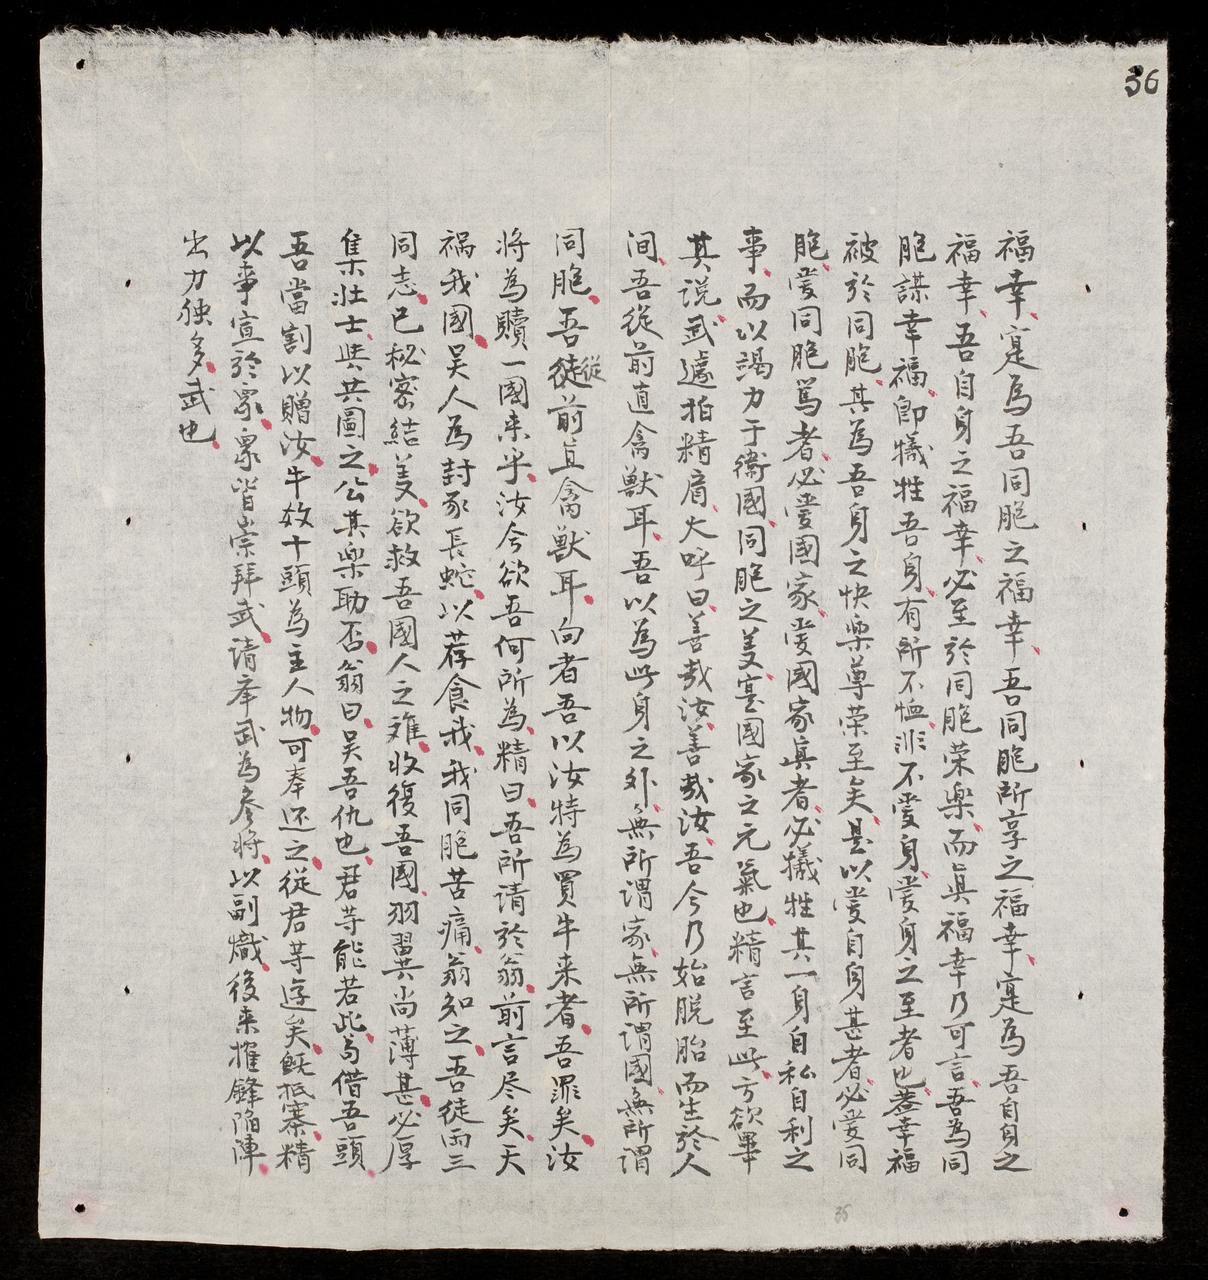 36
福幸寔為吾同胞之福幸吾同胞所享之福幸寔為吾自身之
福幸吾自身之福幸必至於同胞荣楽而眞福幸乃可言吾為同
胞謀幸福卽犧牲吾身有所不恤非不愛身愛身之至者也葢幸福
被於同胞其為吾身之快楽尊荣至矣是以愛自身甚者必愛同
胞愛同胞篤者必愛國家愛國家眞者必犧牲其一身自私自利之
事而以竭力于衛國同胞之义寔國家之元氣也精言至此方欲畢
其说武遽拍精肩大呼曰善哉汝善哉汝吾今乃始脱胎而生於人
间吾從前直禽獸耳吾以為此身之外無所谓家無所谓國無所谓
同胞吾徒從前直禽獸耳向者吾以汝特為買牛来者吾罪矣汝
将為贖一國来乎汝今欲吾何所為精曰吾所请於翁前言尽矣天
祸我國吴人為封豕長蛇以荐食我我同胞苦痛翁知之吾徒两三
同志已秘密結义欲救吾國人之难收復吾國羽翼尚薄甚必厚
集壮士與共圖之公其楽助否翁曰吴吾仇也君等能若此苟借吾頭
吾當割以贈汝牛效十頭為主人物可奉还之從君等逰矣旣抵寨精
以事宣於衆衆皆崇拜武请奉武為参将以副熾後来摧鋒陷陣
出力強多武也
36